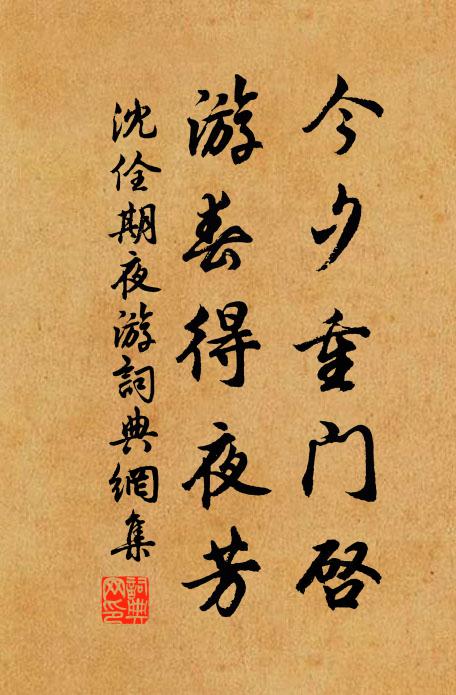 今夕重门启
游春得夜芳
沈佺期夜游詞典網集
詞典网印